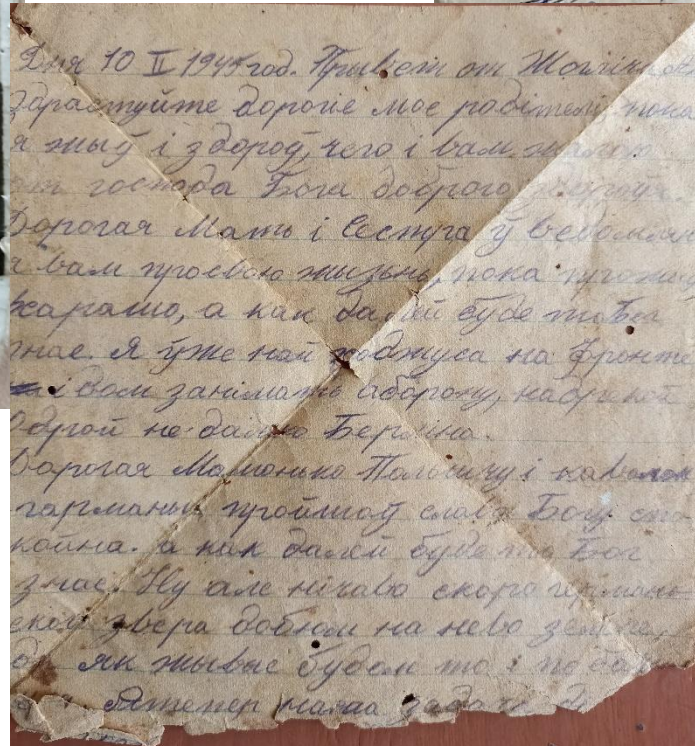 Дня 10 II 1945 год. Прывет от
Здраствуйте дорогіе мое родітелі пока
я жыў і здороў, чего і вам желаю
от господа Бога доброго здароўя.
Дорогая Мать і Сестра ўведомляю
я вам про свою жызьнь, пока прожыў
харашо, а как далей буде то Бог
знае. Я ўже на фронте
ідом занімать аборону, над рекой
Одрой не далеко Берліна.
Дорогая Мамонько Половіну і кавалок
гарманьі пройшоў слава Богу спо
койна. а как далей буде то Бог
знае. Ну але нічаво скоро германь
ского звера добьюм на нево земле,
да як жывые будом то і побач
тепер наша задача